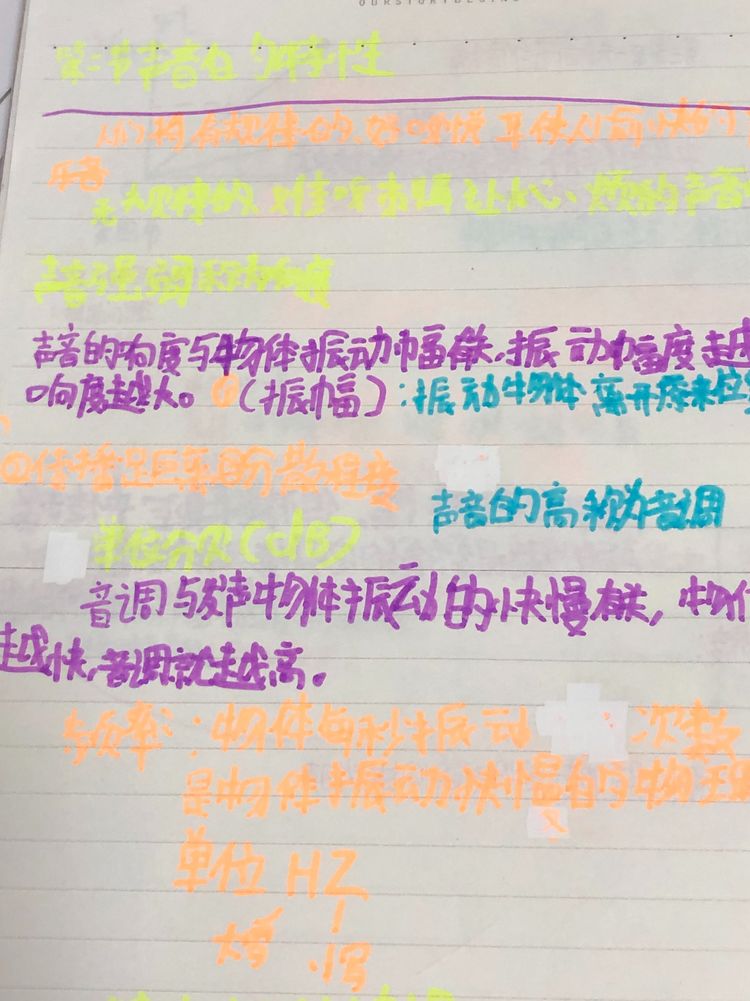 OURSTORYBEGINS
第二节声音的特性
人们将有规律的、好听悦耳使人愉快的
乐音
无规律的难听刺耳让人心烦的声音
声音强弱称为响度
声音的响度与物体振动幅有关,振动幅度越
响度越大。①(振幅):振动物体离开原来位
②传播距离 分散程度
声音的高 称为音调
单位分贝(dB)
音调与发声物体振动的快慢有关,物体
越快,音调就越高。
频率:物体每秒振动 次数
是物体振动快慢的物理
单位 HZ
大写 小写